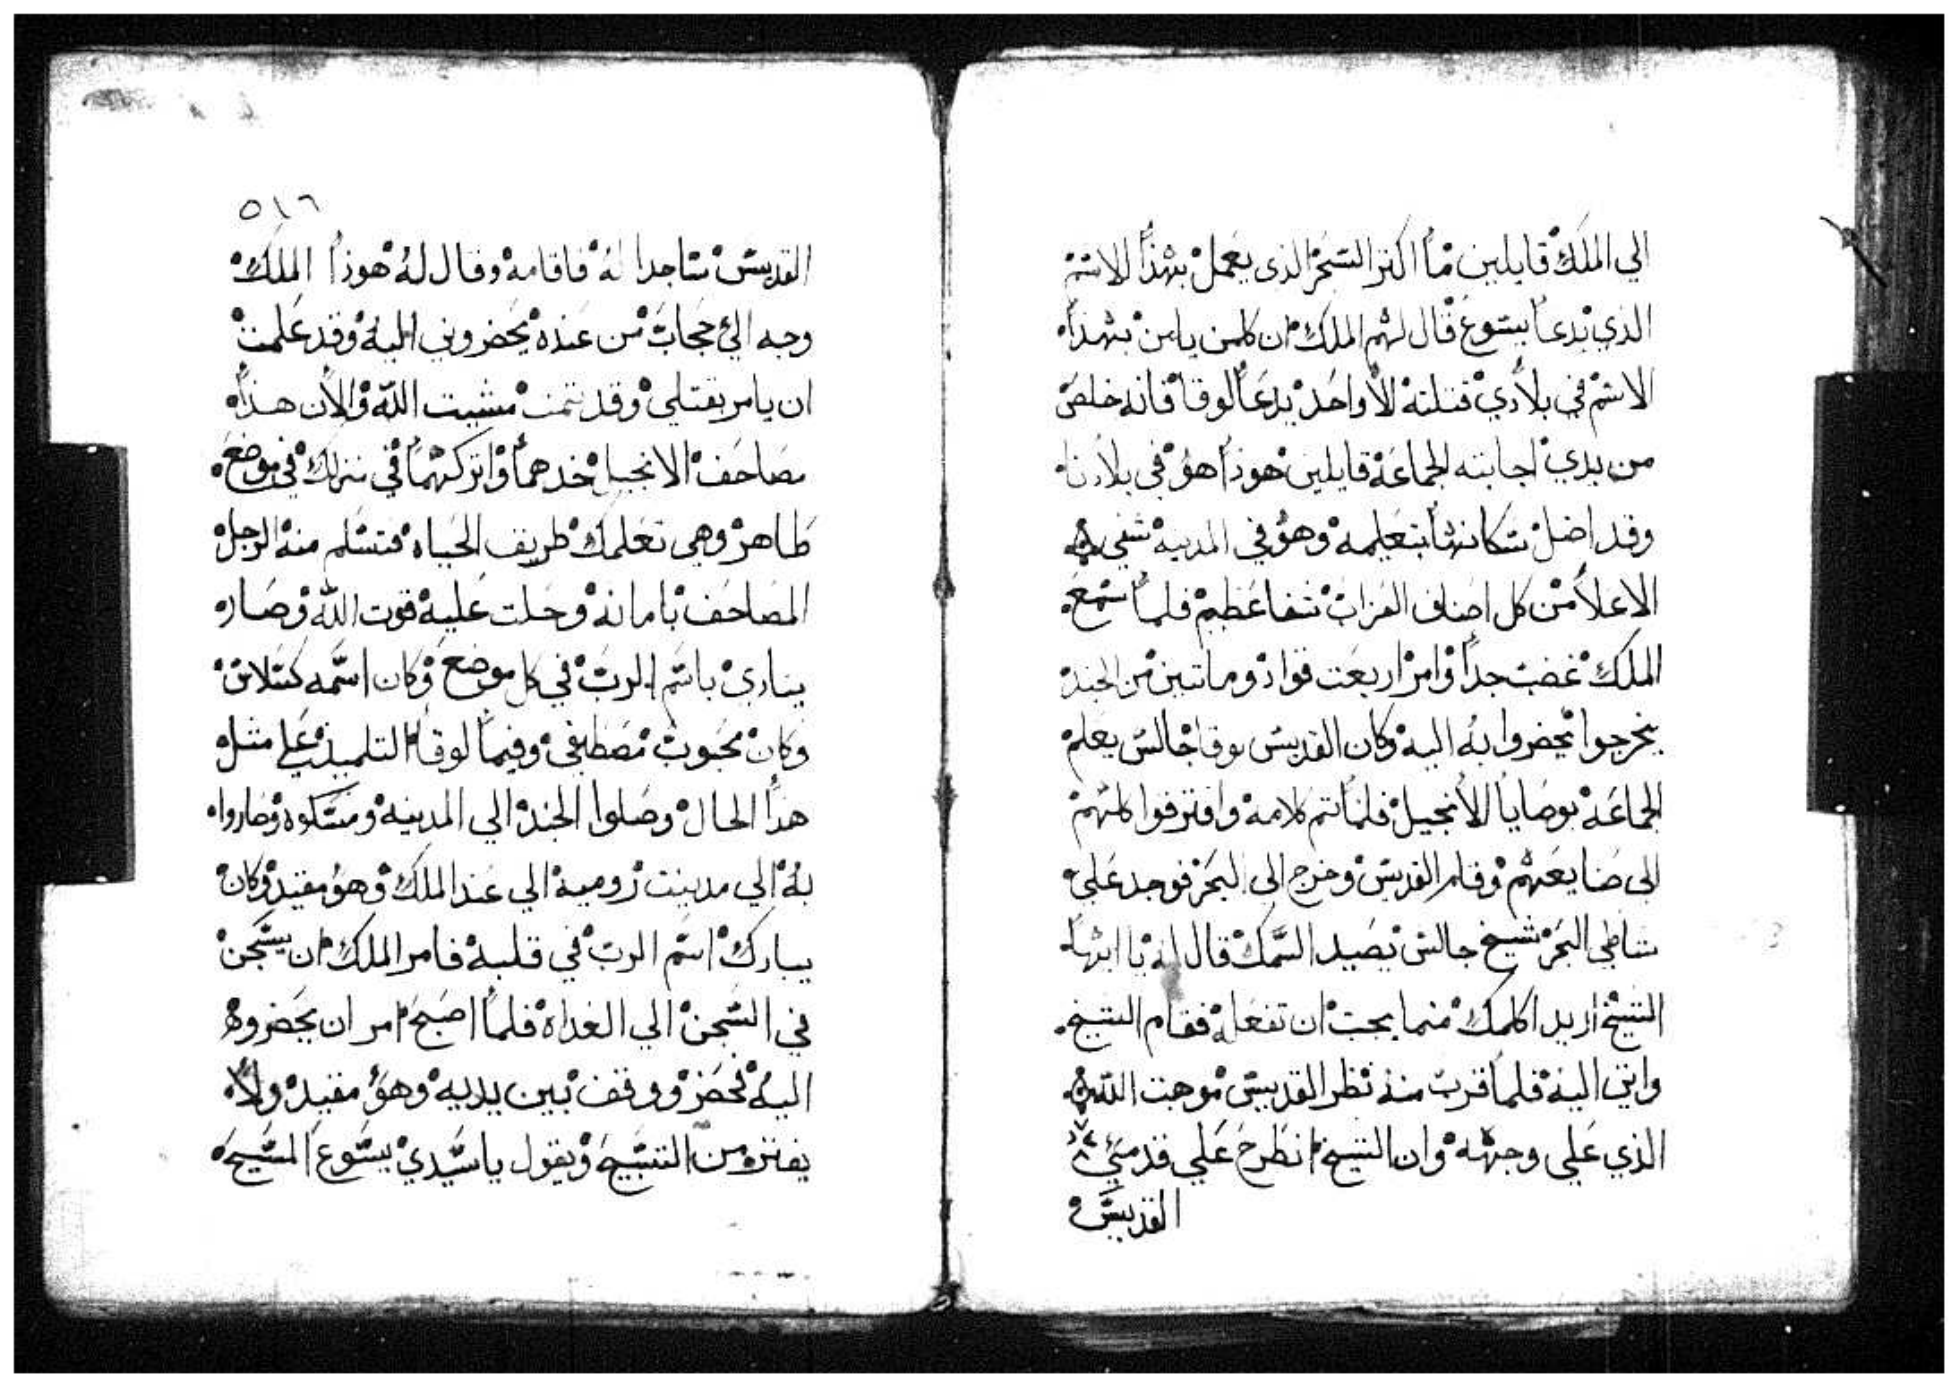 الي الملك قايلين ما اكتر السحر الذي يعمل بهذا الاسم
الذي يدعا يسوع قال لهم الملك ان كلمن يامن بهذا
الاسم في بلادي قتلته الا واحد يدعا لوقا فانه خلص
من يدي اجابته الجماعة قايلين هوذا هو في بلادنا
وقد اضل سكانها بتعليمه وهو في المدينه شفي
الاعلا من كل اصناف العزاب شفا عظيم فلما سمع
الملك غضب جدا وامر اربعت قواد وماتين من الجند
يخرجوا يحضروا به اليه وكان القديس لوقا جالس يعلم
الجماعه بوصايا الانجيل فلما تم كلامه وافترقوا كلهم
الى ضايعهم وقام القديس وخرج الى البحر فوجد على
شاطي البحر شيخ جالس يصيد السمك قال له يا ايها
الشيخ اريد اكلمك مهما يجب ان تفعله فقام الشيخ
واتى اليه فلما قرب منه نظر القديس موهبت الله
الذي على وجهه وان الشيخ انطرح علي قدمي
القديس
٥١٦
القديس ساجدا له فاقامه وقال له هوذا الملك
وجه الي حجاب من عنده يحضروني اليه وقد علمت
ان يامر بقتلي وقد تمت مشيت الله والان هذا
مصاحف الانجيل خدهما واتركهما في منزلك في موضع
طاهر وهي تعلمك طريق الحياه فتسلم منه الرجل
المصاحف بامانه وحلت عليه قوت الله وصار
ينادي باسم الرب في كل موضع وكان اسمه كسلاس
وكان محبوب مصطفى وفيما لوقا التلميذ علي مثل
هذا الحال وصلوا الجند الي المدينه ومسكوه وصاروا
به الي مدينت روميه الي عند الملك وهو مقيد وكان
يبارك اسم الرب في قلبه فامر الملك ان يسجن
في السجن الي الغداه فلما اصبح امر ان يحضروه
اليه فحضر ووقف بين يديه وهو مقيد ولا
يفتر من التسبيح ويقول يا سيدي يسوع المسيح